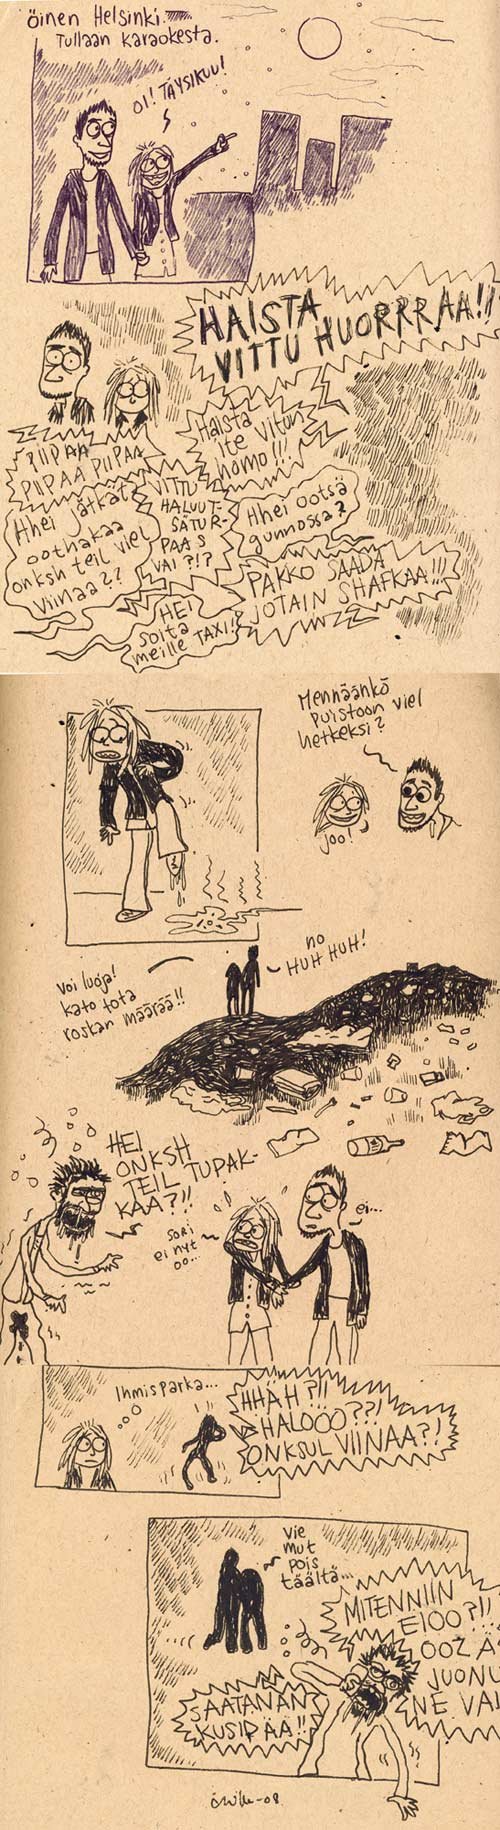 öinen Helsinki.
Tullaan karaokesta.
OI! TÄYSIKUU!
HAISTA
VITTU HUORRRAA!!
PIIPAA
PIIPAA PIIPAA
Haista
ite vitun
homo!!!
Hhei jätkät
oothakaa
onksh teil viel
viinaa??
VITTU
HALUUT-
SÄ TUR-
PAAS
VAI?!?
Hhei ootsä
gunnossa?
PAKKO SAADA
JOTAIN SHAFKAA!!!
HEI
soita
meille TAXI!!
Mennäänkö
puistoon viel
hetkeksi?
joo!
voi luoja!
kato tota
roskan määrää!!
no
HUH HUH!
HEI
ONKSH
TEIL TUPAK-
KAA?!!
sori
ei nyt
oo...
ei...
Ihmisparka...
HHÄH?!!
HALOOO??!
ONKSUL VIINAA?!
vie
mut
pois
täältä...
MITENNIIN
EIOO?!!
OOZ Ä
JUONU
NE VAI
SAATANAN
KUSIPÄÄ!!
-08